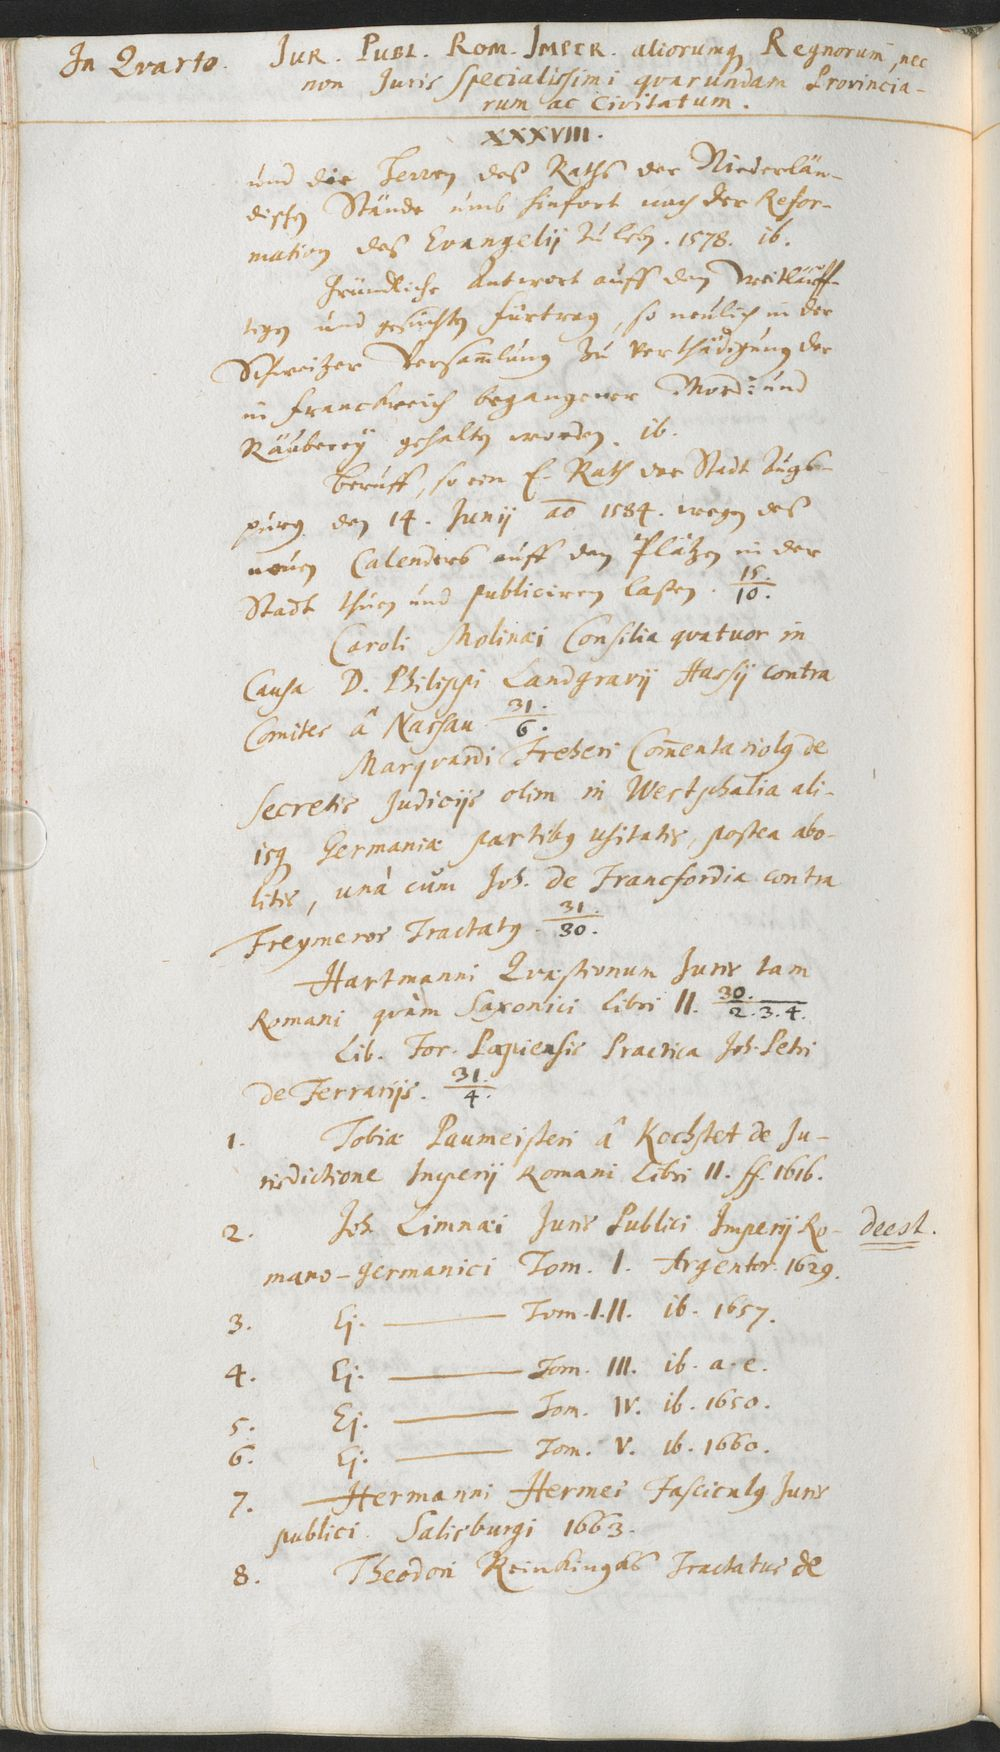 In Qvarto. JUR. PUBL. ROM. IMPER. aliorumq Regnorum, nec
non Juris specialissimi qvarundam Provincia-
rum ac Civitatum.
XXXVIII.
und die Herren deß Raths der Niederlän-
dischen Stände umb hinfort nach der Refor-
mation deß Evangelij zu leben. 1578. ib.
Gründliche Antwort auff den Weitläuff-
tigen und gesuchten fürtrag, so neulich in der
Schweitzer Versam̄lung zu Verthädigung der
in Franckreich begangener Mord= und
Räuberey gehalten worden. ib.
Beruff, so ein E. Rath der Stadt Augs-
purg den 14. Junij ao 1584. wegen deß
neuen Calenders auff den Plätzen in der
Stadt thuen und publiciren laßen. 15./10.
Caroli Molinæi Consilia qvatuor in
Causa D. Philippi Landgravij Hassij contra
Comites â Nassau 31./6.
Marqvardi Freheri Com̄entariolq de
secretis Judicijs olim in Westphalia ali-
isq Germaniæ partibq usitatis, postea abo-
litis, unà cum Joh. de Francfordia contra
Freymeros Tractatq. 31./30.
Hartmanni Qvæstionum Juris tam
Romani qvàm Saxonici Libri II. 30./2.3.4.
Lib. For. Papiensis Practica Joh. Petri
de Ferrarijs. 31./4.
1. Tobiæ Paumeisteri â Kochstet de Ju-
risdictione Imperij Romani Libri II. ff. 1616.
2. Joh. Limnæi Juris Publici Imperij Ro- deest.
mano-germanici Tom. I. Argentor. 1629.
3. Ej. ——— Tom. I. II. ib. 1657.
4. Ej. ——— Tom. III. ib. a. e.
5. Ej. ——— Tom. IV. ib. 1650.
6. Ej. ——— Tom. V. ib. 1660.
7. Hermanni Hermes Fasciculq Juris
publici. Salisburgi 1663.
8. Theodori Reinkingks Tractatus de